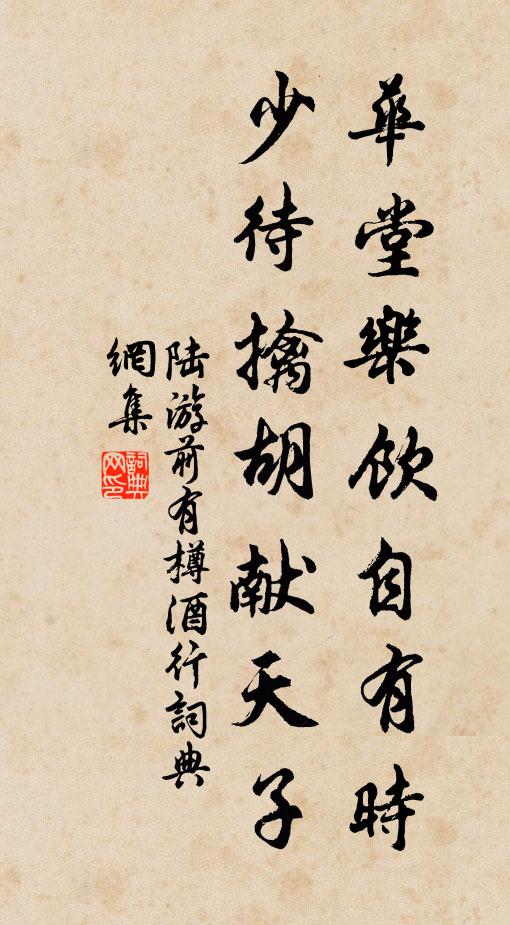 華堂樂飲自有時
少待擒胡献天子
陆游前有樽酒行詞典
網集
詞典
网印